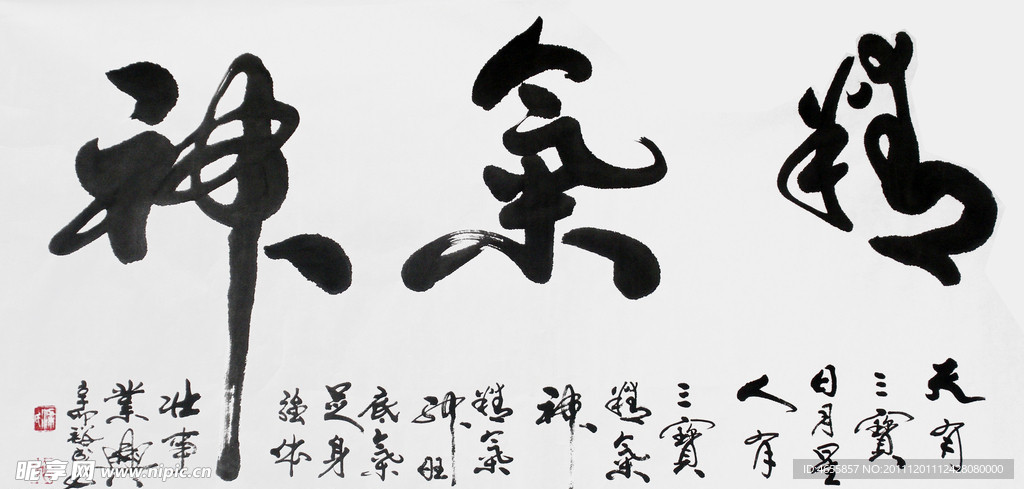 精氣神
天有
三寶
日月星
人有
三寶
精氣
神
精氣
神旺
底氣
足身
強体
壯事
業
昵享网 www.nipic.cn
ID:4655857 NO:20111201112428080000